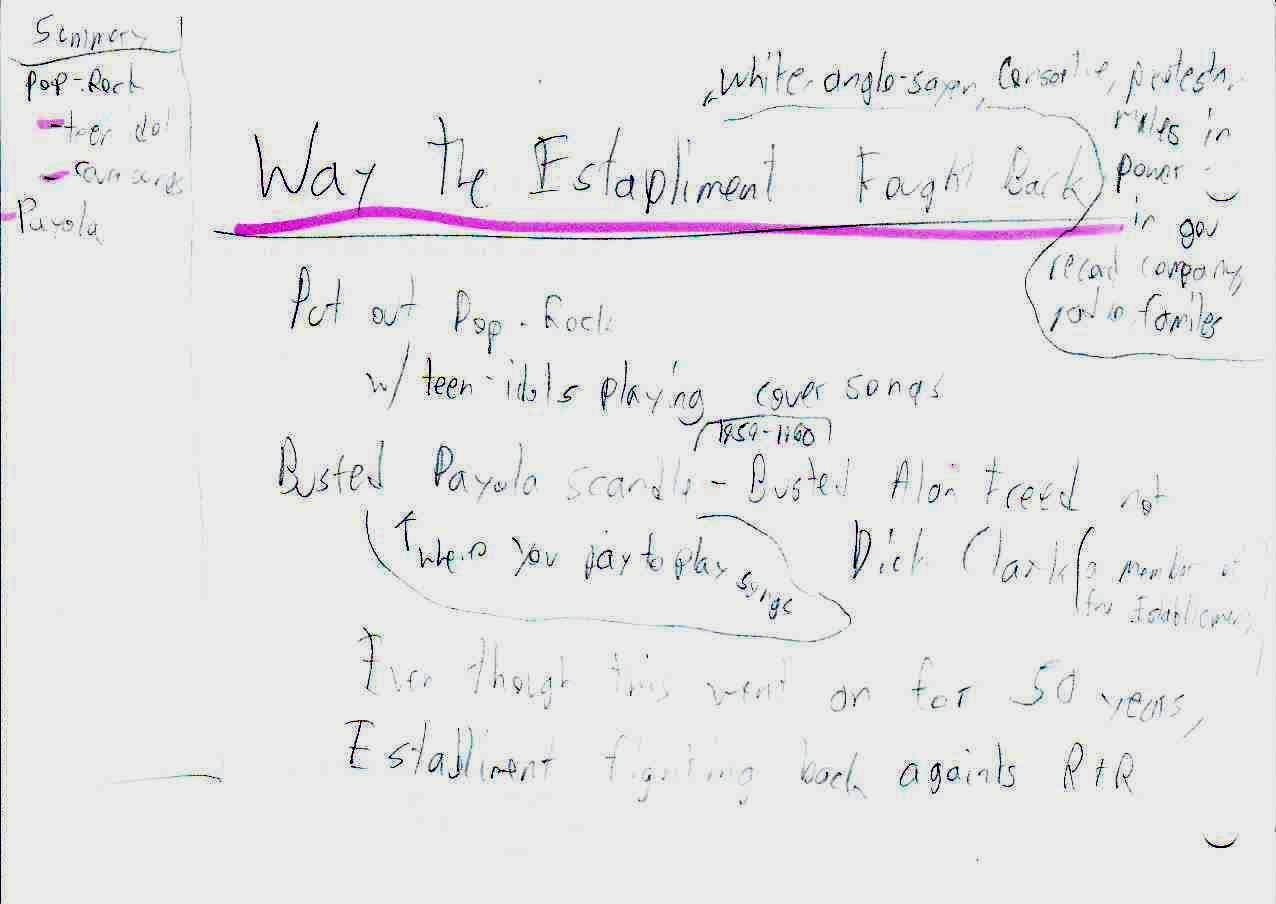 Summery
Pop-Rock
- teen idol
- cover songs
Payola
white-anglo-saxon,
males in
power
in gov
record company,
radio, familes
Way The Estapliment Fought Back
Put out Pop-Rock
w/ teen-idols playing cover songs
(1959-1960)
Busted Payola scandle - Busted Alan Freed not
Dick Clark (a member of
the Establisment)
where you pay to play
songs
Even though this went on for 50 years,
Establiment fighting back againts R+R